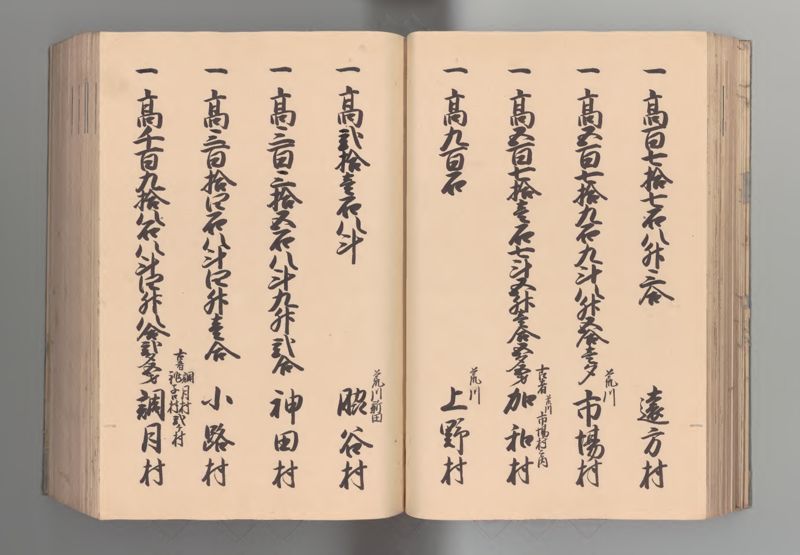 一 高百七拾七石八升二合 遠方村
一 高五百七拾九石九斗八升五合壱夕 荒川 市場村
一 高五百七拾壱石七斗五升壱合五勺 古者荒川市場村之内 加和村
一 高九百石 荒川 上野村
一 高弐拾壱石八斗 荒川前田 脇谷村
一 高三百三拾五石八斗九升弐合 神田村
一 高三百拾四石八斗四升壱合 小路村
一 高千百九拾八石八斗四升八合弐勺 古者 調月村 弐ヶ村 調月村